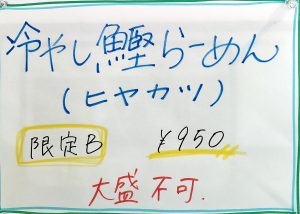 冷やし鰹らーめん
(ヒヤカツ)
限定B ¥950
大盛不可.